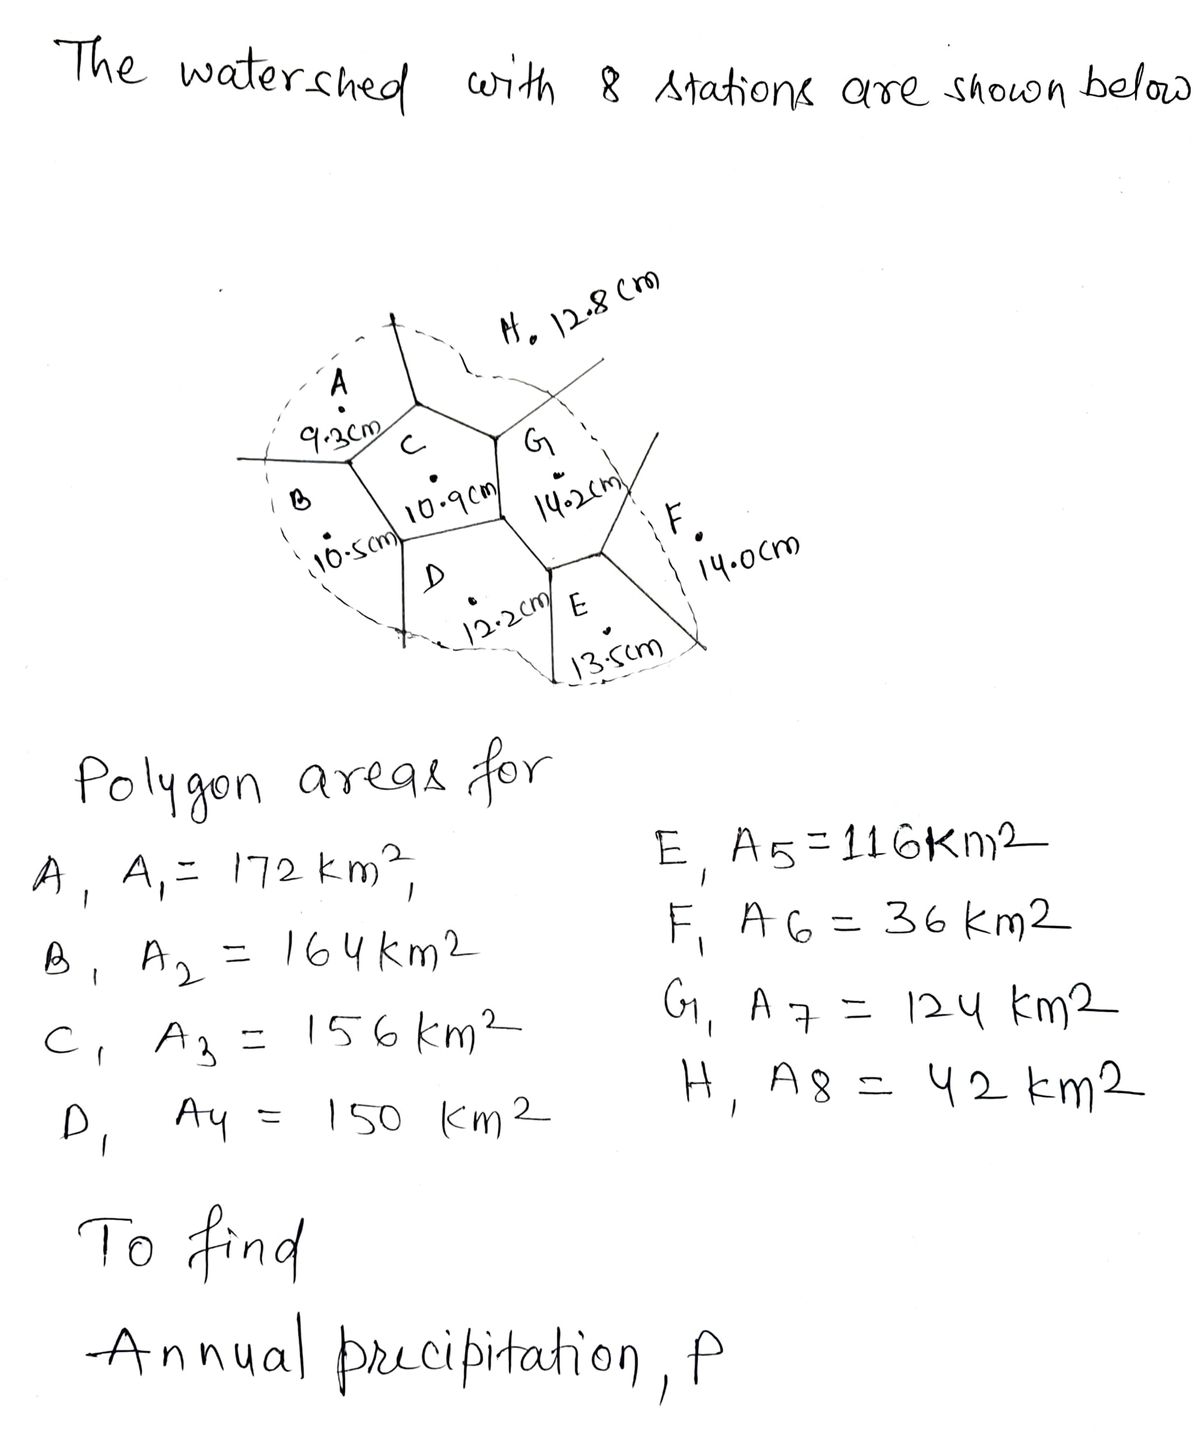 The watershed with 8 stations are shown below
H. 12.8 cm
A
9.3cm
C
G
B
10.9cm
14.2cm
F.
10.5cm
14.0cm
D
12.2cm
E
13.5cm
Polygon areas for
A, A1 = 172 km2,
B, A2 = 164 km2
C, A3 = 156 km2
D, A4 = 150 km2
E, A5 = 116Km2
F, A6 = 36 km2
G, A7 = 124 km2
H, A8 = 42 km2
To find
Annual precipitation, P